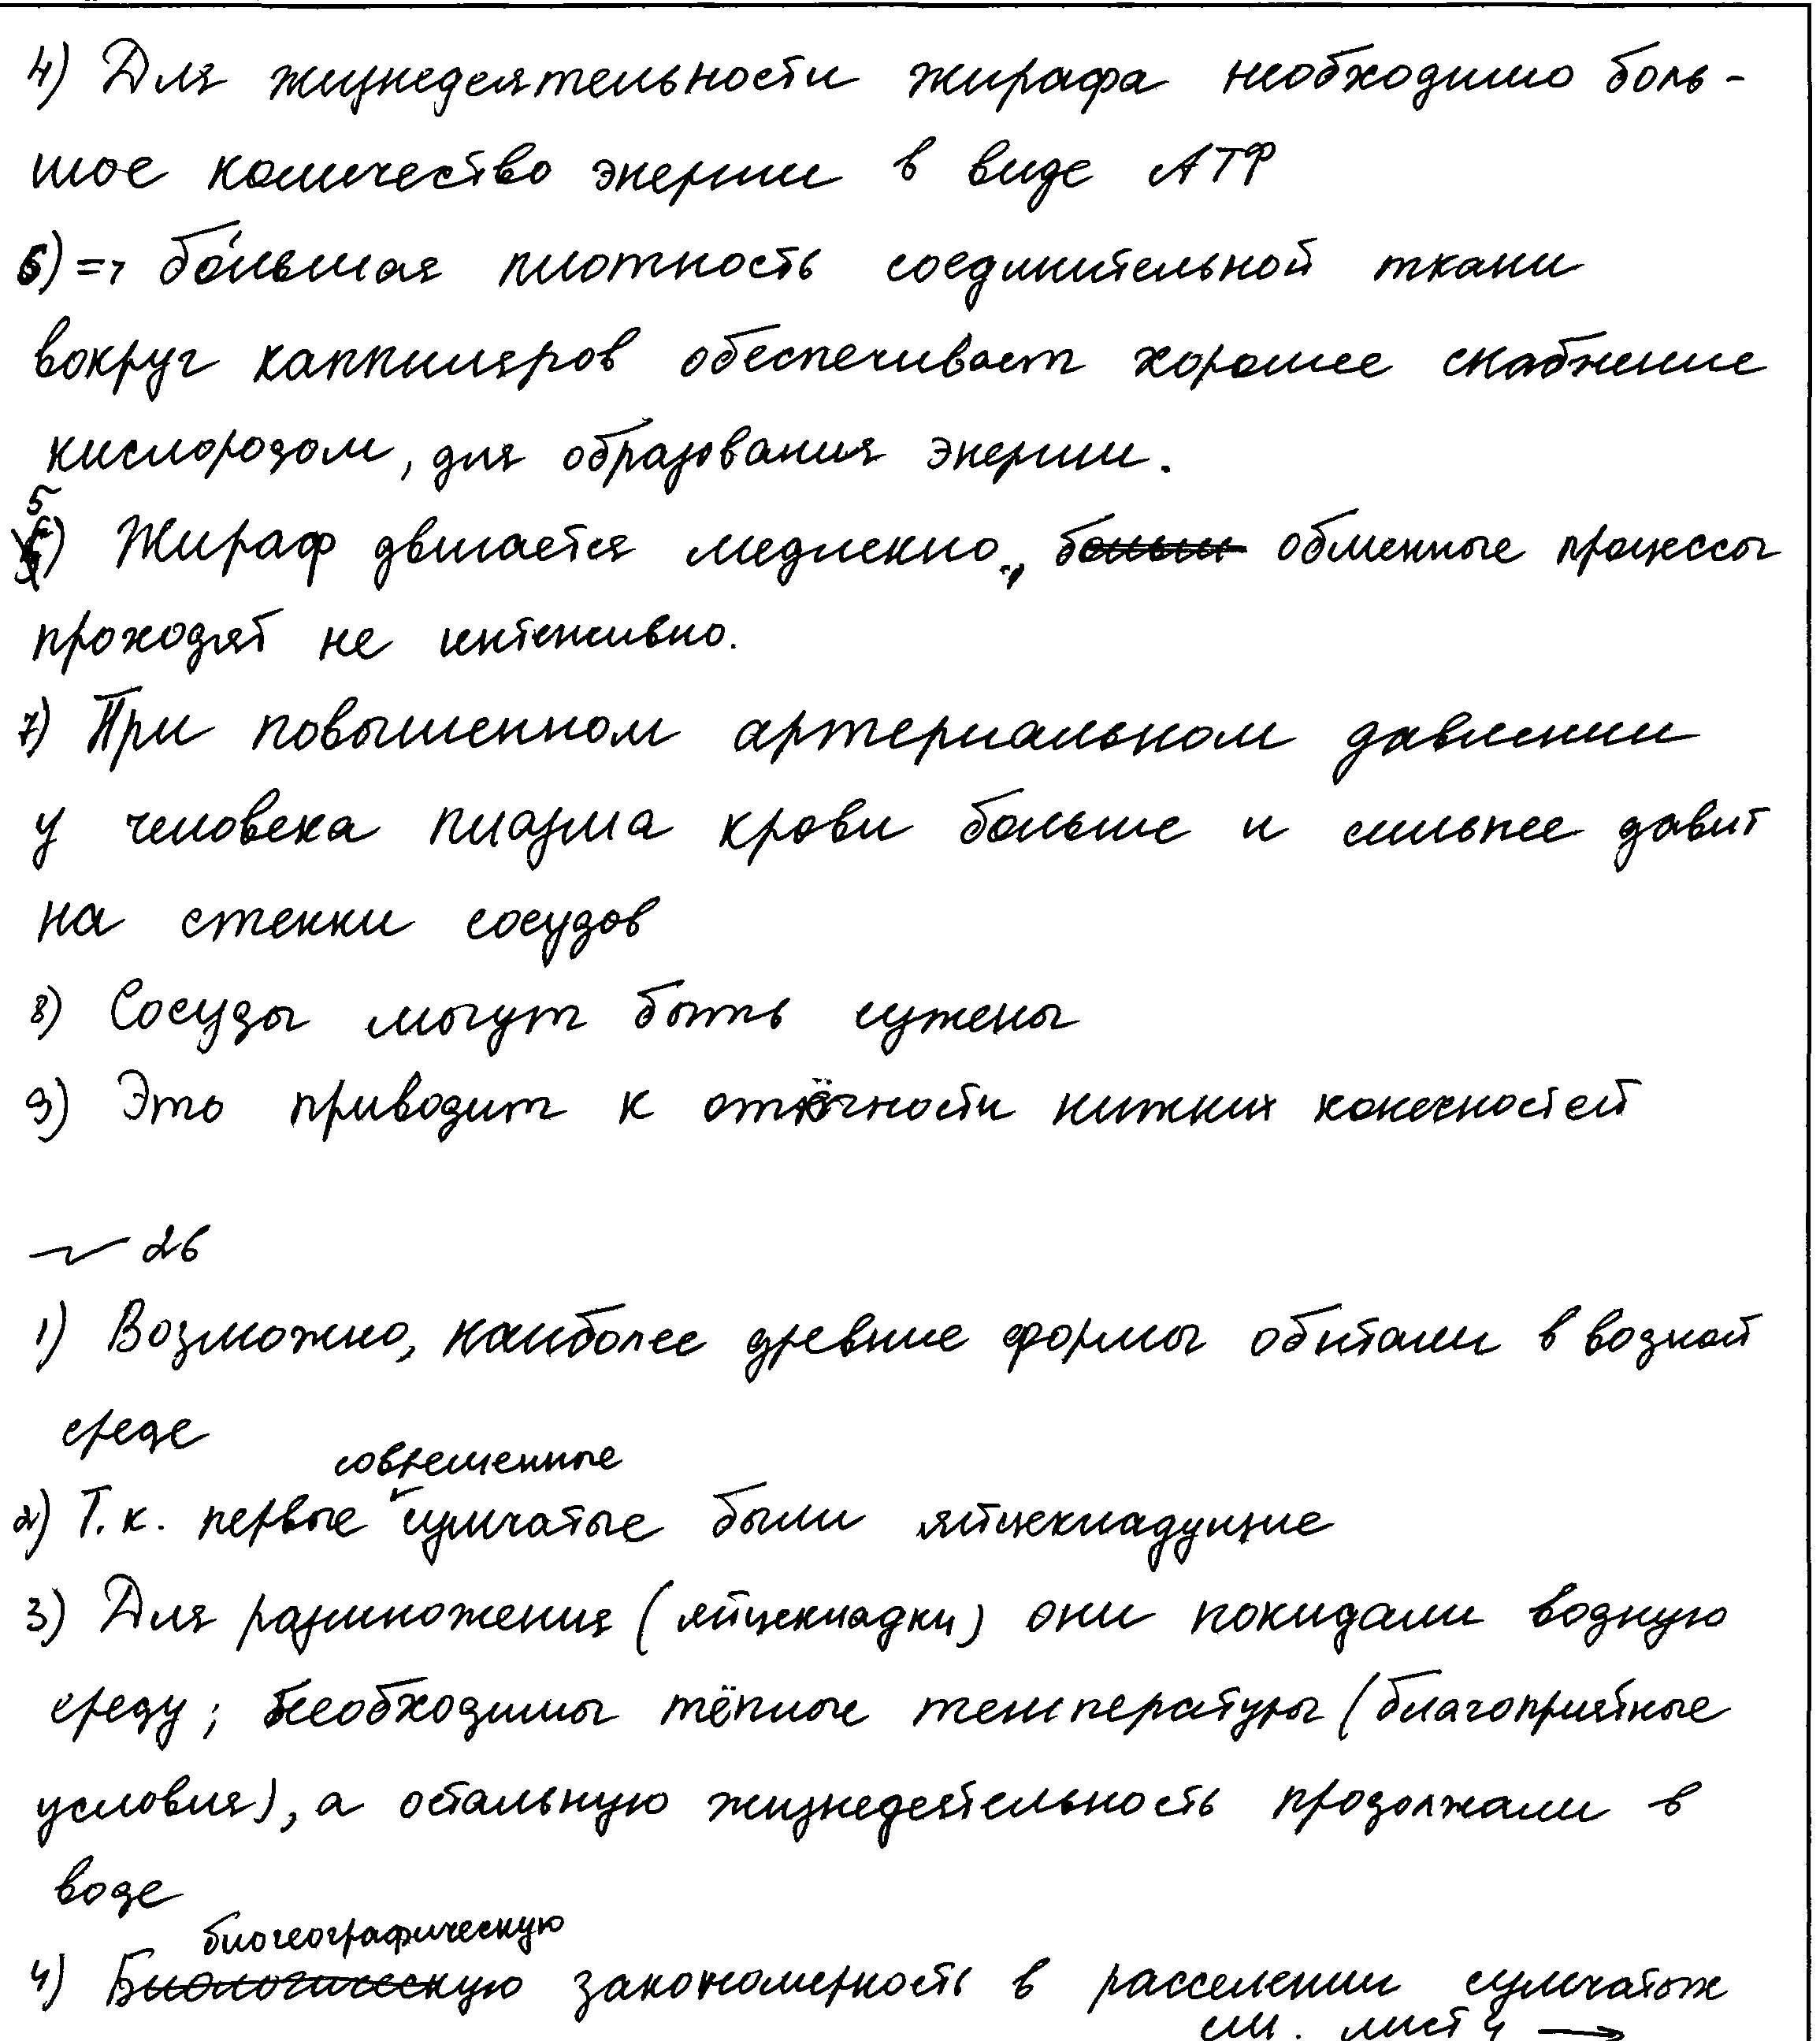 4) Для жизнедеятельности жирафа необходимо боль-
шое количество энергии в виде АТФ
6) => бо́льшая плотность соединительной ткани
вокруг каппиляров обеспечивает хорошее снабжение
кислородом, для образования энергии.
5) Жираф двигается медленно, больш обменные процессы
проходят не интенсивно.
7) При повышенном артериальном давлении
у человека плазма крови больше и сильнее давит
на стенки сосудов
8) Сосуды могут быть сужены
9) Это приводит к отёчности нижних конечностей
№ 26
1) Возможно, наиболее древние формы обитали в водной
среде
современные
2) Т.к. первые сумчатые были яйцекладущие
3) Для размножения (яйцекладки) они покидали водную
среду; необходимы тёплые температуры (благоприятные
условия), а остальную жизнедеятельность продолжали в
воде
биогеографическую
4) Биологическую закономерность в расселении сумчатых
см. лист 4 →